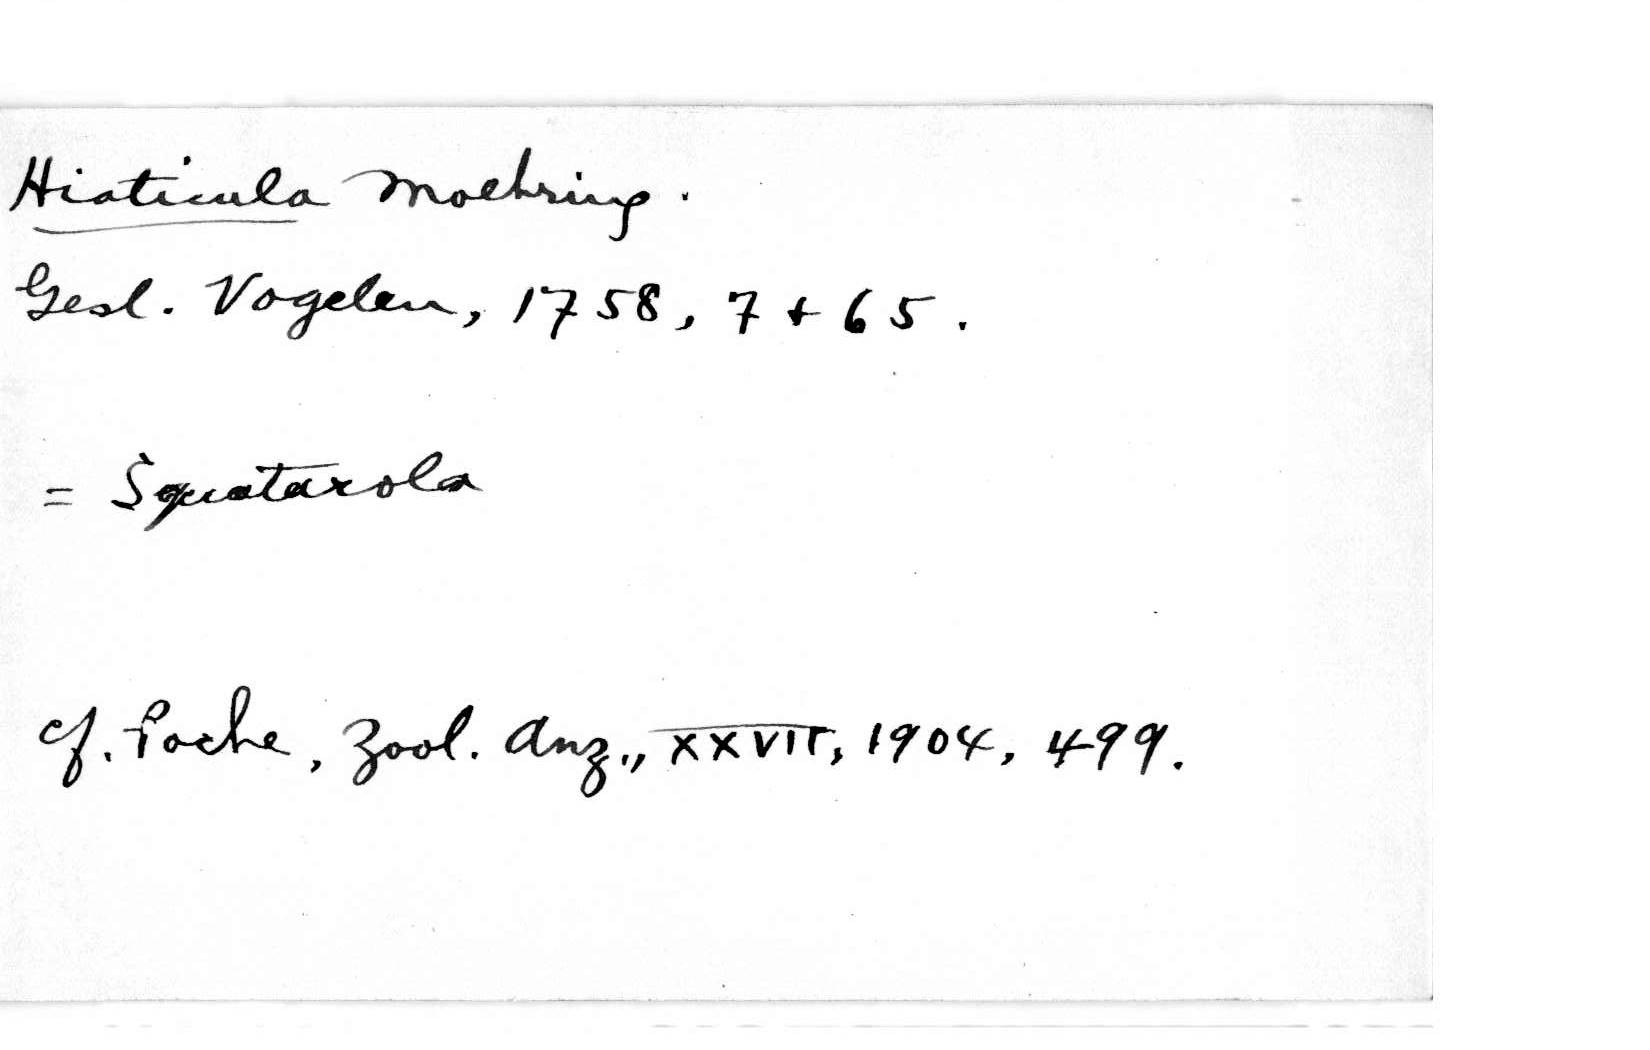 Hiaticula Moehring.
Gesl. Vogelen, 1758, 7 + 65.
= Squatarola
cf. Poche, Zool. Anz., XXVII, 1904, 499.